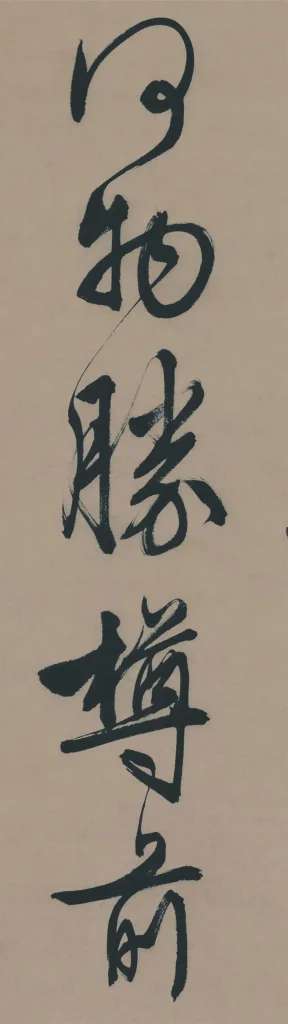 何物勝樽前